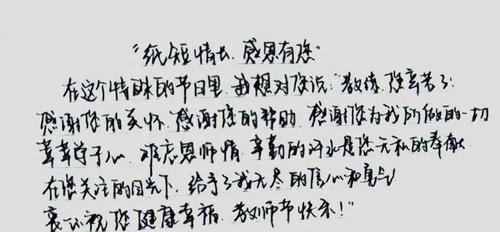 “纸短情长，感恩有您”
在这个特殊的节日里，我想对您说：“教练，您辛苦了！
感谢您的关怀，感谢您的帮助，感谢您为我所做的一切
莘莘学子心，难忘恩师情，辛勤的汗水是您无私的奉献
在您关注的目光下，给予了我无尽的信心和勇气
衷心祝您健康幸福，教师节快乐！”